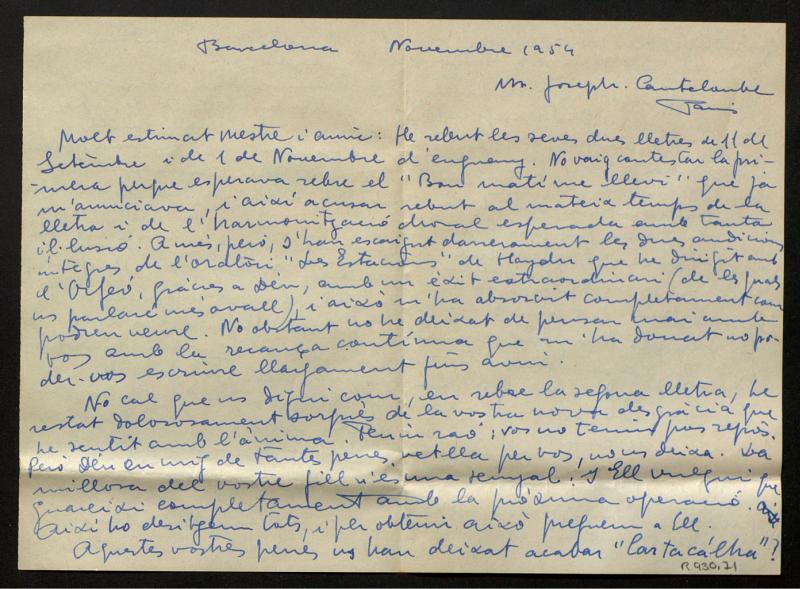 Barcelona Novembre 1954
M. Joseph. Canteloube
Paris
Molt estimat Mestre i amic: He rebut les seves dues lletres de 11 del
Setembre i de 1 de Novembre d'enguany. No vaig contestar la pri-
-mera perque esperava rebre el "Bon matí me lleví" que ja
m'anunciava, i així acusar rebut al mateix temps de la
lletra i de l'harmonització choral esperada amb tanta
il·lusió. A més, però, s'han escaigut darrerament les dues audicions
íntegres de l'oratòri "Les Estacions" de Haydn que he dirigit amb
l'Orfeó, gràcies a Déu, amb un èxit extraordinari (de les quals
us parlaré més avall), i això m'ha absorbit completament com
podreu veure. No obstant no he deixat de pensar mai amb
vos amb la recança contínua que m'ha donat no po-
der-vos escriure llargament fins avui.
No cal que us digui com, en rebre la segona lletra, he
restat dolorosament sorprès de la vostra nova desgràcia que
he sentit amb l'ànima. Teniu raó; vos no teniu pas repòs.
Però Déu en mig de tantes penes, vetlla per vos, no us deixa. La
millora del vostre fill n'és una senyal: I Ell vulgui que
guareixi completament amb la pròxima operació.
Així ho desitgem tots, i per obtenir això preguem a Ell.
Aquestes vostres penes us han deixat acabar "Cartacálha"?
R 930,21